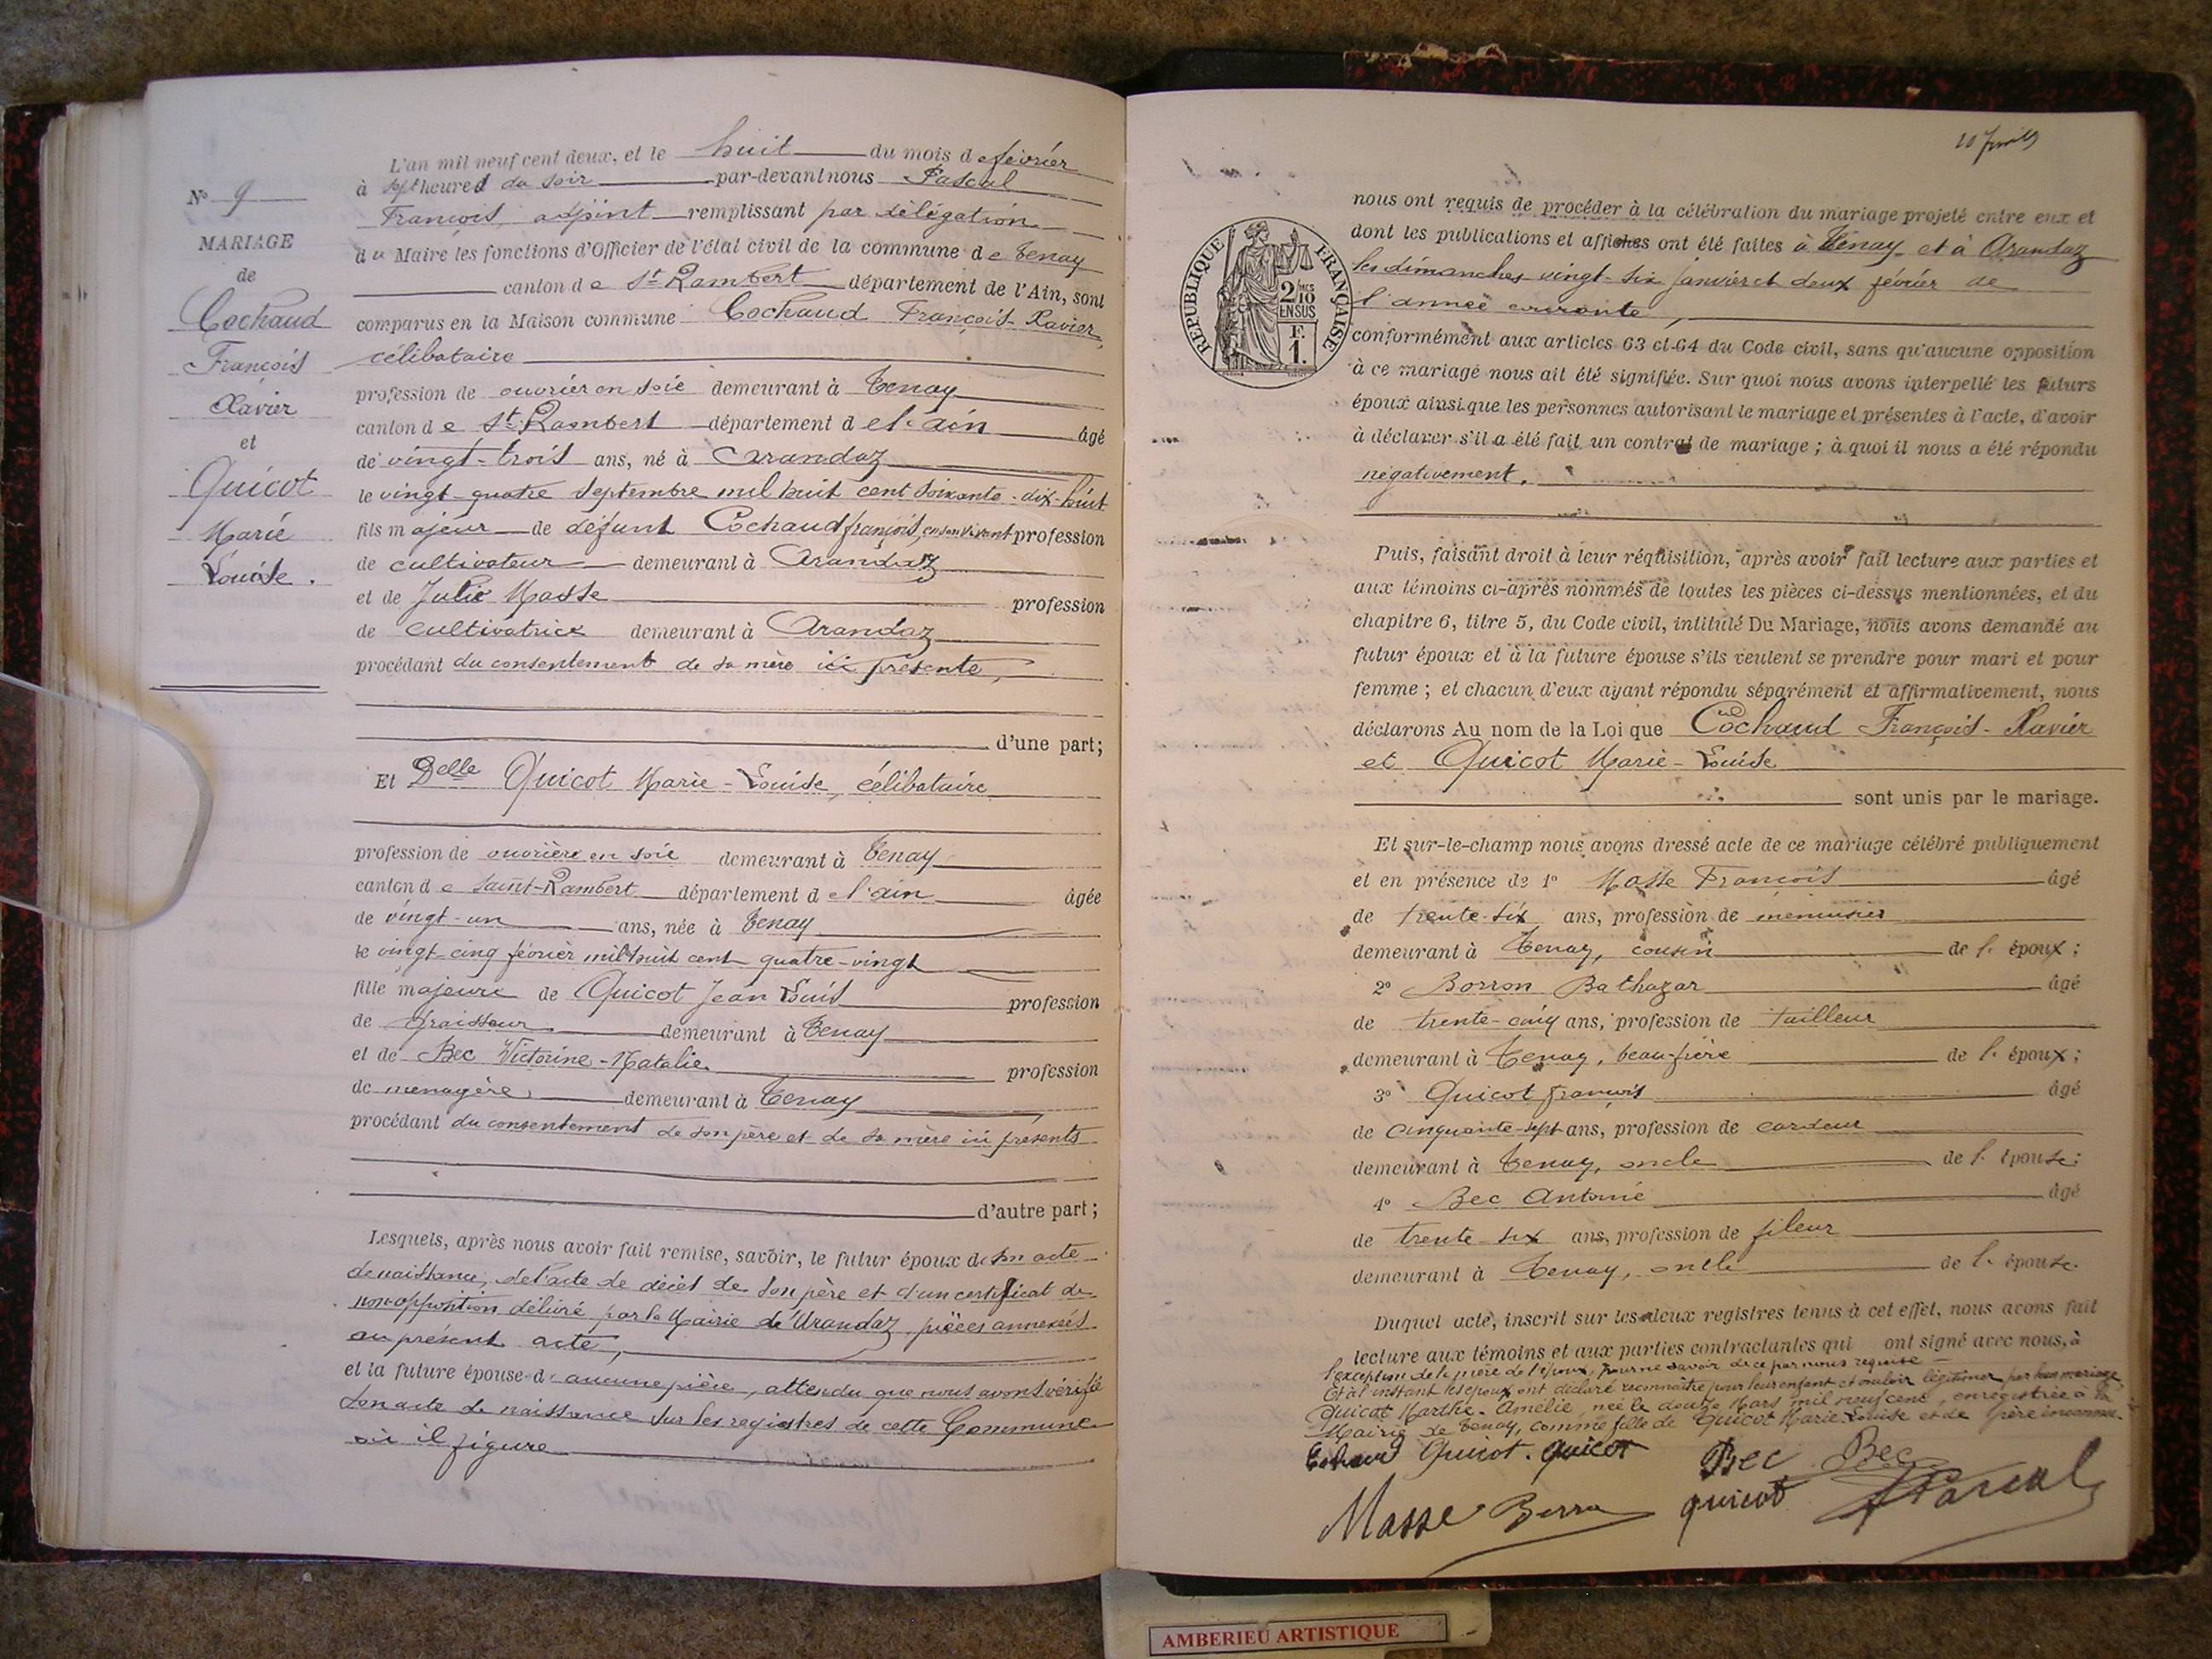 L'an mil neuf cent deux, et le huit du mois de février
à sept heures du soir par-devant nous Pascal
François, adjoint remplissant par délégation
du Maire les fonctions d'Officier de l'état civil de la commune de Tenay
canton de St Rambert département de l'Ain, sont
comparus en la Maison commune Cochaud François-Xavier,
célibataire
profession de ouvrier en soie demeurant à Tenay
canton de St Rambert département de l'ain âgé
de vingt-trois ans, né à Arandaz
le vingt-quatre septembre mil huit cent soixante-dix-huit
fils majeur de défunt Cochaud françois, en son vivant profession
de cultivateur demeurant à Arandaz
et de Julie Masse profession
de cultivatrice demeurant à Arandaz
procédant du consentement de sa mère ici présente,
d'une part;
Nº 9
MARIAGE
de
Cochaud
François
Xavier
et
Quicot
Marie
Louise.
Et Delle Quicot Marie-Louise, célibataire
profession de ouvrière en soie demeurant à Tenay
canton de Saint-Rambert département de l'ain âgée
de vingt-un ans, née à Tenay
le vingt-cinq février mil huit cent quatre-vingt
fille majeure de Quicot Jean Louis profession
de graisseur demeurant à Tenay
et de Bec Victorine-Natalie profession
de menagère, demeurant à Tenay
procédant du consentement de son père et de sa mère ici présents
d'autre part;
Lesquels, après nous avoir fait remise, savoir, le futur époux de son acte
de naissance, de l'acte de décès de son père et d'un certificat de
non-opposition délivré par la Mairie de Arandaz, pièces annexées
au présent acte,
et la future épouse d'aucune pièce, attendu que nous avons vérifié
son acte de naissance sur les registres de cette Commune
où il figure
20 Juin
REPUBLIQUE FRANÇAISE
2/10
EN SUS
F.
1.
nous ont requis de procéder à la célébration du mariage projeté entre eux et
dont les publications et affiches ont été faites à Tenay et à Arandaz
les dimanches vingt-six janvier et deux février de
l'année courante,
conformément aux articles 63 et 64 du Code civil, sans qu'aucune opposition
à ce mariage nous ait été signifiée. Sur quoi nous avons interpellé les futurs
époux ainsi que les personnes autorisant le mariage et présentes à l'acte, d'avoir
à déclarer s'il a été fait un contrat de mariage ; à quoi il nous a été répondu
négativement.
Puis, faisant droit à leur réquisition, après avoir fait lecture aux parties et
aux témoins ci-après nommés de toutes les pièces ci-dessus mentionnées, et du
chapitre 6, titre 5, du Code civil, intitulé Du Mariage, nous avons demandé au
futur époux et à la future épouse s'ils veulent se prendre pour mari et pour
femme ; et chacun d'eux ayant répondu séparément et affirmativement, nous
déclarons Au nom de la Loi que Cochaud François-Xavier
et Quicot Marie-Louise
sont unis par le mariage.
Et sur-le-champ nous avons dressé acte de ce mariage célébré publiquement
et en présence de 1º Masse François âgé
de trente-six ans, profession de menuisier
demeurant à Tenay, cousin de l'époux ;
2º Borron Bathazar âgé
de trente-cinq ans, profession de tailleur
demeurant à Tenay, beau-frère de l'époux ;
3º Quicot françois âgé
de cinquante-sept ans, profession de cardeur
demeurant à Tenay, oncle de l'épouse ;
4º Bec Antoine âgé
de trente-six ans, profession de fileur
demeurant à Tenay, oncle de l'épouse.
Duquel acte, inscrit sur les deux registres tenus à cet effet, nous avons fait
lecture aux témoins et aux parties contractantes qui ont signé avec nous, à
l'exception de la mère de l'époux, pour ne savoir de ce par nous requise
Et à l'instant les époux ont déclaré reconnaître pour leur enfant et vouloir légitimer par leur mariage,
Quicot Marthe-Amélie, née le douze Mars mil neuf cent, enregistrée à la
Mairie de Tenay, comme fille de Quicot Marie-Louise et de père inconnu.
Cochaud Quicot. quicot Bec Bec
Masse quicot Pascal
AMBERIEU ARTISTIQUE